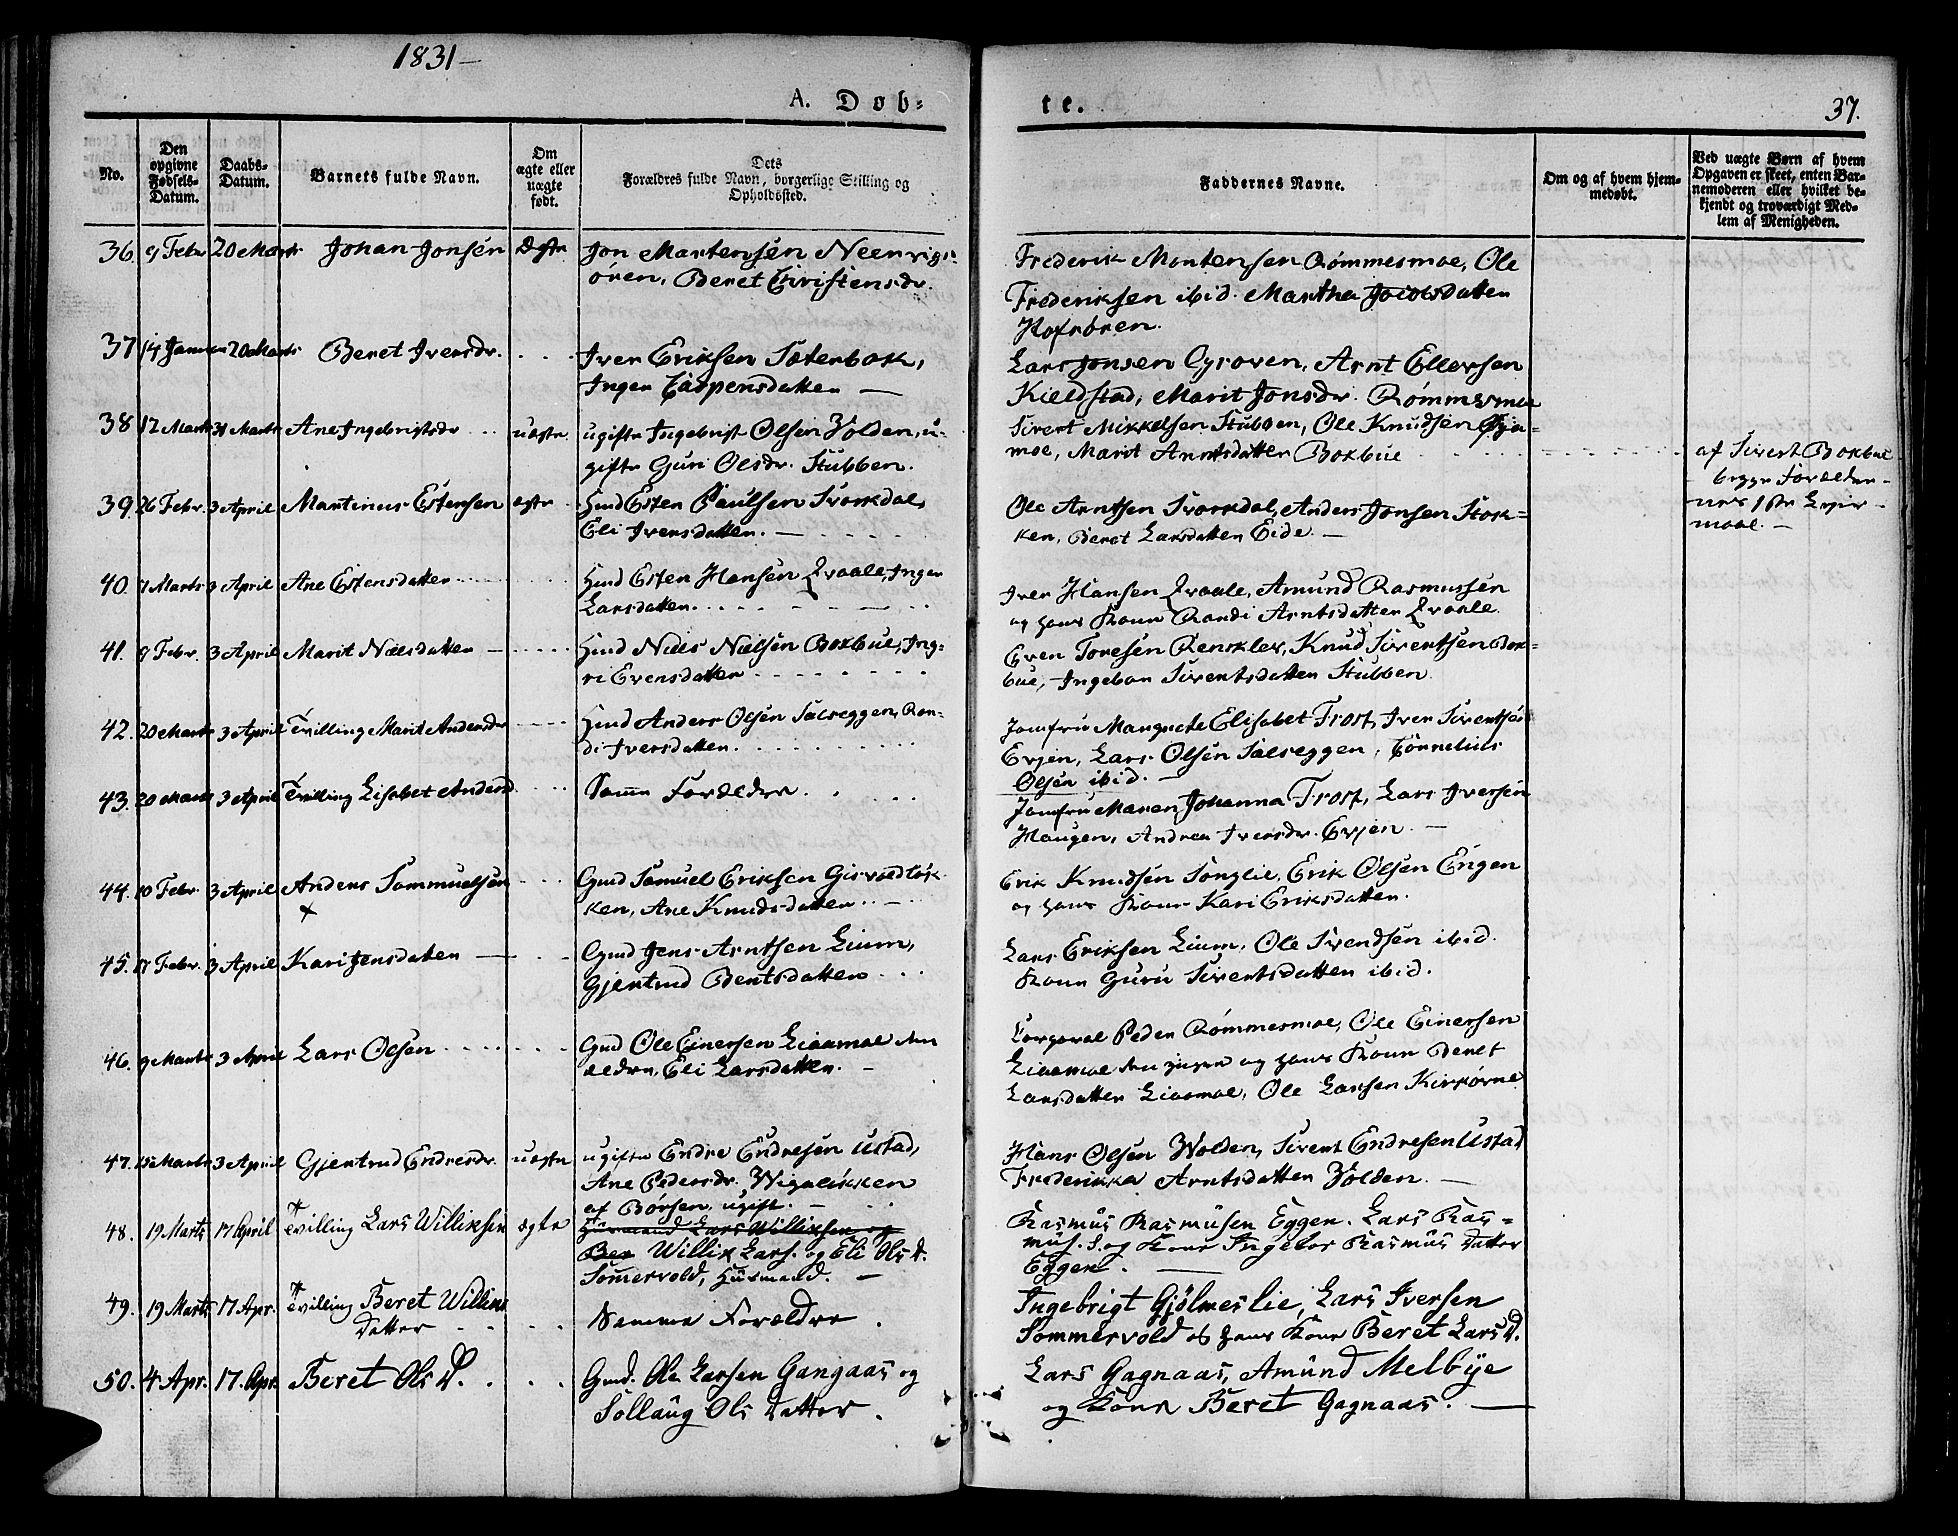 1831
A. Døb=
te.
37.
No.
Den opgivne Fødsels-Datum.
Daabs-Datum.
Barnets fulde Navn.
Om ægte eller uægte født.
Dets Forældres fulde Navn, borgerlige Stilling og Opholdssted.
Faddernes Navne.
Om og af hvem hjemmedøbt.
Ved uægte Børn af hvem Opgaven er skeet, enten Barnemoderen eller hvilket bekjendt og troværdigt Medlem af Menigheden.
36. 9 Febr 20 Marts Johan Jonsen ægte Jon Martensen
ören, Beret Christensdr.
Frederik Mortensen Römmesmoe, Ole
Frederiksen ibid. Martha Jocobsdatter
Hofrören.
37 14 Januar 20 Marts Beret Iversdr. Iver Eriksen Sæterbak,
Inger Caspersdatter
Lars Jonsen Cyroven, Arnt Ellevsen
Kieldstad, Marit Jonsdr. Römmesmoe
38 12 Marts 31 Marts Ane Ingebrigtsdr uægte ugifte Ingebrigt Olsen Volden, u-
gifte Guri Olsdr. Stubben.
Sivert Mikkelsen Stubben, Ole Knudsen
moe, Marit Arntsdatter Bokbue
af Sivert Bokbue
begge Forældre-
nes 1ste Leier-
maal.
39. 26 Febr. 3 April Martinus Estensen ægte Hmd Esten Paulsen Svorkdal,
Eli Iversdatter.
Ole Arntsen Svorkdal, Anders Jonsen Stok-
ken, Beret Larsdatter Eide.
40. 7 Marts 3 April Ane Estensdatter Hmd Esten Hansen Qvaale, Inger
Larsdatter.
Iver Hansen Qvaale, Amund Rasmussen
og hans Kone Randi Arntsdatter Qvaale.
41. 8 Febr. 3 April Marit Nielsdatter Hmd Niels Nielsen Bokbue, Ing-
ri Evensdatter
Even Toresen Rensklev, Knud Sivertsen Bok-
bue, Ingebor Sivertsdatter Stubben
42. 20 Marts 3 April Tvilling Marit Andersdr Hmd Anders Olsen Salseggen, Ran-
di Iversdatter.
Jomfru Margrete Elisabet Frost, Iver Sivertsen
Evjen, Lars Olsen Salseggen, Cornelius
Olsen ibid.
43. 20 Marts 3 April Tvilling Lisabet Andersd Samme Forældre
Jomfru Maren Johanna Frost, Lars Iversen
Haugen, Andrea Iversdr. Evjen.
44. 10 Febr 3 April Anders Sammuelsen Gmd Samuel Eriksen Girvoldlök-
ken, Ane Knudsdatter
Erik Knudsen Songlie, Erik Olsen Engen
og hans Kone Kari Eriksdatter.
45. 17 Febr. 3 April Kari Jensdatter Gmd Jens Arntsen Lium,
Gjertrud Bentsdatter
Lars Eriksen Lium, Ole Svendsen ibid.
Kone Guru Sivertsdatter ibid.
46. 9 Marts 3 April Lars Olsen Gmd Ole Einersen Liaamoe den
ældre, Eli Larsdatter.
Corporal Peder Römmesmoe, Ole Einersen
Liaamoe den yngre og hans Kone Beret
Larsdatter Liaamoe, Ole Larsen Kirkörne
47. 25 Marts 3 April Gjertrud Endresdr. uægte ugifte Endre Endresen Ustad,
Ane Pedersdr. Wigalökken
af Börsen ugift.
Hans Olsen Wolden, Sivert Endresen Ustad
Frederikka Arntsdatter Volden.
48. 19 Marts 17 April Tvilling Lars Williksen ægte Huusmand Lars Williksen og
Ber Willik Lars. og Eli Ols D.
Somervold, Huusmand.
Rasmus Rasmusen Eggen. Lars Ras=
mus. S. og Kone Ingebor Rasmus Datter
Eggen.
49. 19 Marts 17 Apr. Tvilling Beret Williks
Datter Samme Forældre.
Ingebrigt Gjölmeslie, Lars Iversen
Sommervold og hans Kone Beret Lars D.
50. 4 Apr. 17. Apr. Beret Ols D. Gmd. Ole Larsen Gangaas og
Sollaug Ols Datter.
Lars Gagnaas, Amund Melbye
og Kone Beret Gagnaas.